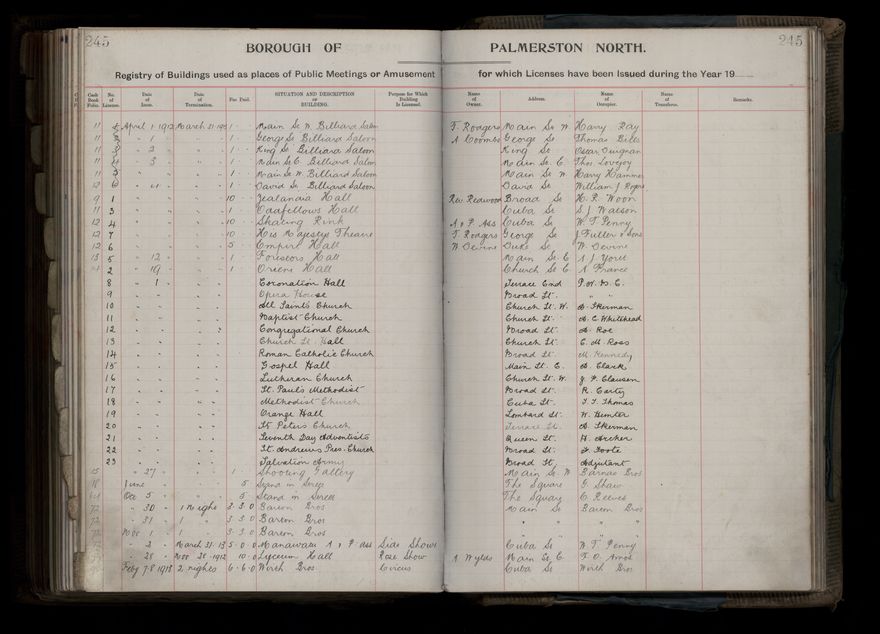 245 BOROUGH OF PALMERSTON NORTH. 245
Registry of Buildings used as places of Public Meetings or Amusement for which Licenses have been Issued during the Year 19
Cash Book Folio. No. of License. Date of Issue. Date of Termination. Fee Paid. SITUATION AND DESCRIPTION OF BUILDING. Purpose for Which Building Is Licensed. Name of Owner. Address. Name of Occupier. Name of Transferee. Remarks.
11 April 1 1912 March 31 1 Main St W. Billiard Saloon T. Rodgers Main St W Harry Ray
11 " 1 " " 1 George St Billiard Saloon A Coombs George St Thomas
11 3 " 2 " " 1 King St Billiard Saloon King St Oscar Duignan
11 " 3 " " 1 Main St E. Billiard Saloon Main St. E Thos Lovejoy
11 " " " 1 Main St W. Billiard Saloon Main St W Harry Hammer
12 6 " " " 1 David St Billiard Saloon David St William J Rogers
9 1 " " " 10 Zealandia Hall Rev Redwood Broad St H. R. Woon
11 3 " " " 1 Oddfellows Hall Cuba St S. J Watson
12 4 " " " 10 Skating Rink A & P Ass Cuba St W. T Penny
12 7 " " " 10 His Majestys Theatre T. Rodgers George St J Fuller & Sons
12 6 " " " 5 Empire Hall W Devine Duke St W Devine
13 5 " 12 " " 1 Foresters Hall Main St E A J
2 " 19 " " 1 Greens Hall Church St E A France
8 " 1 " " Coronation Hall Terrace End
9 " " " " Opera House Broad St. " "
10 " " " " All Saints Church Church St. W. A. Ikerman
11 " " " " Baptist Church Church St. A. C. Whitehead
12 " " " " Congregational Church Broad St. A. Roe
13 " " " " Church St. Hall Church St. C. M. Ross
14 " " " " Roman Catholic Church Broad St M Kennedy
15 " " " " Gospel Hall Main St. E. A. Clark
16 " " " " Lutheran Church Church St. W. Clausen
17 " " " " St. Pauls Methodist Broad St. R. Carty
18 " " " " Methodist Church Cuba St. Thomas
19 " " " " Orange Hall Lombard St. W. Hunter
20 " " " " St Peters Church Terrace St. A. Ikerman
21 " " " " Seventh Day Adventists Queen St. H. Archer
22 " " " " St. Andrews Pres. Church Broad St. Foote
23 " " " " Salvation Army Broad St, Adjutant
15 " 27 " " 1 Shooting Gallery Main St. W Barnao Bros
18 June " " 5 Stand in Street The Square G Shaw
Oct 5 " " 5 Stand in Street The Square C. Reeves
72 " 30 1 Night 3 3 0 Barton Bros Main St Barton Bros
72 " 31 1 " 3 3 0 Barton Bros " " " "
72 Nov 1 1 " 3 3 0 Barton Bros " " " "
" 2 March 31. 13 5 0 0 Manawatu A & P Ass Side Shows Cuba St W. T Penny
" 28 Nov 28 1912 10 0 Lyceum Hall Rose Show A Wylds Main St E
Feby 7.8 1913 2 nights 6 6 0 Wirth Bros Circus Cuba St Wirth Bros